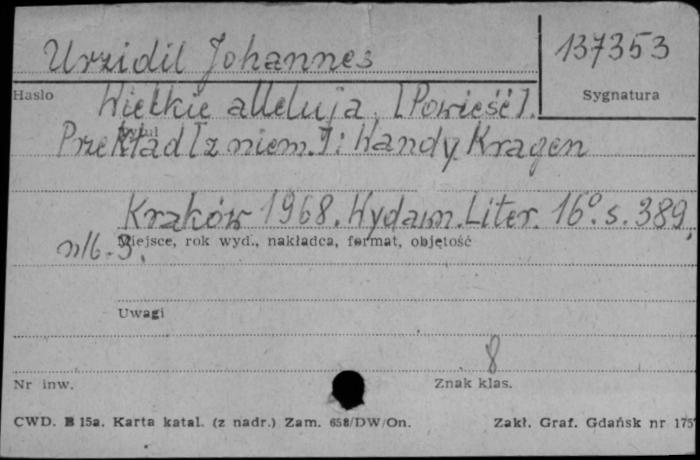 Urzidil Johannes
137353
Hasło
Sygnatura
Wielkie alleluja. [Powieść].
Tytuł
Przekład [z niem.]: Wandy Kragen
Kraków 1968. Wydawn. Liter. 16°. s. 389,
Miejsce, rok wyd., nakładca, format, objętość
nlb. 3.
Uwagi
8
Nr inw.
Znak klas.
CWD. B 15a. Karta katal. (z nadr.) Zam. 658/DW/On.
Zakł. Graf. Gdańsk nr 175